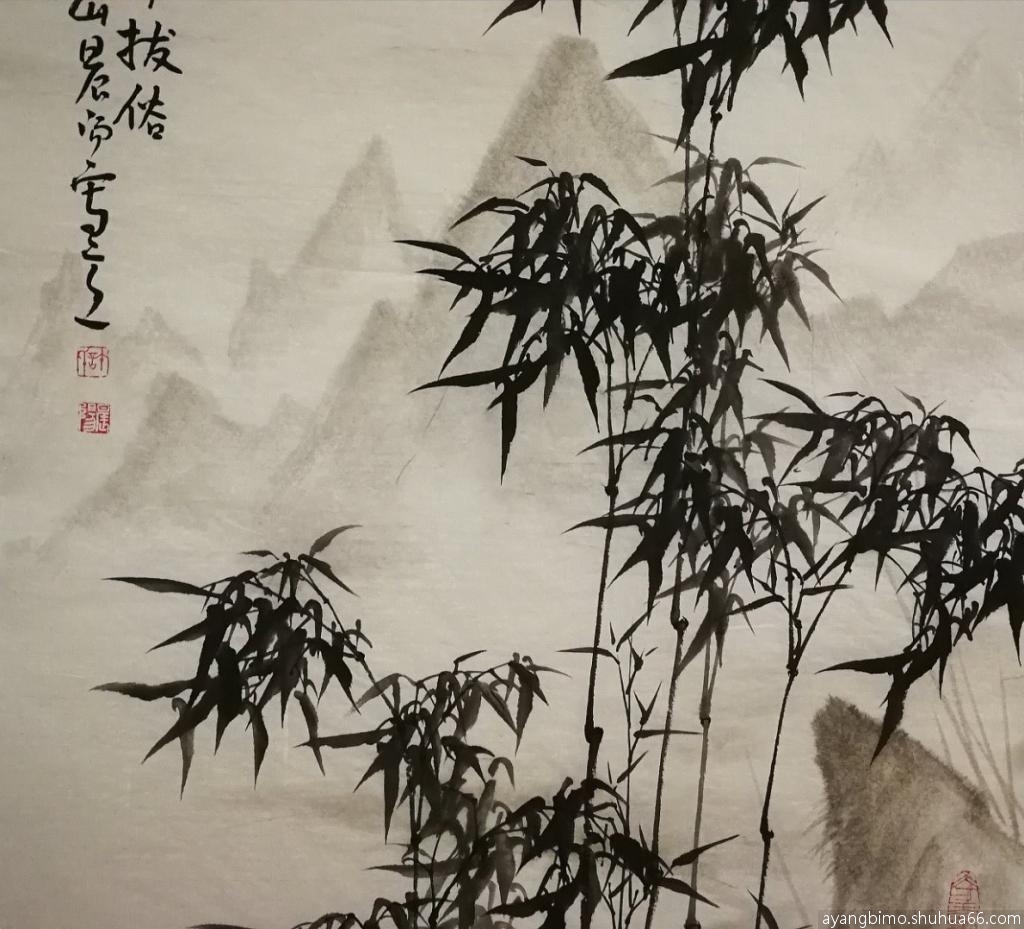 拔俗
山晨阳写之
ayangbimo.shuhua66.com